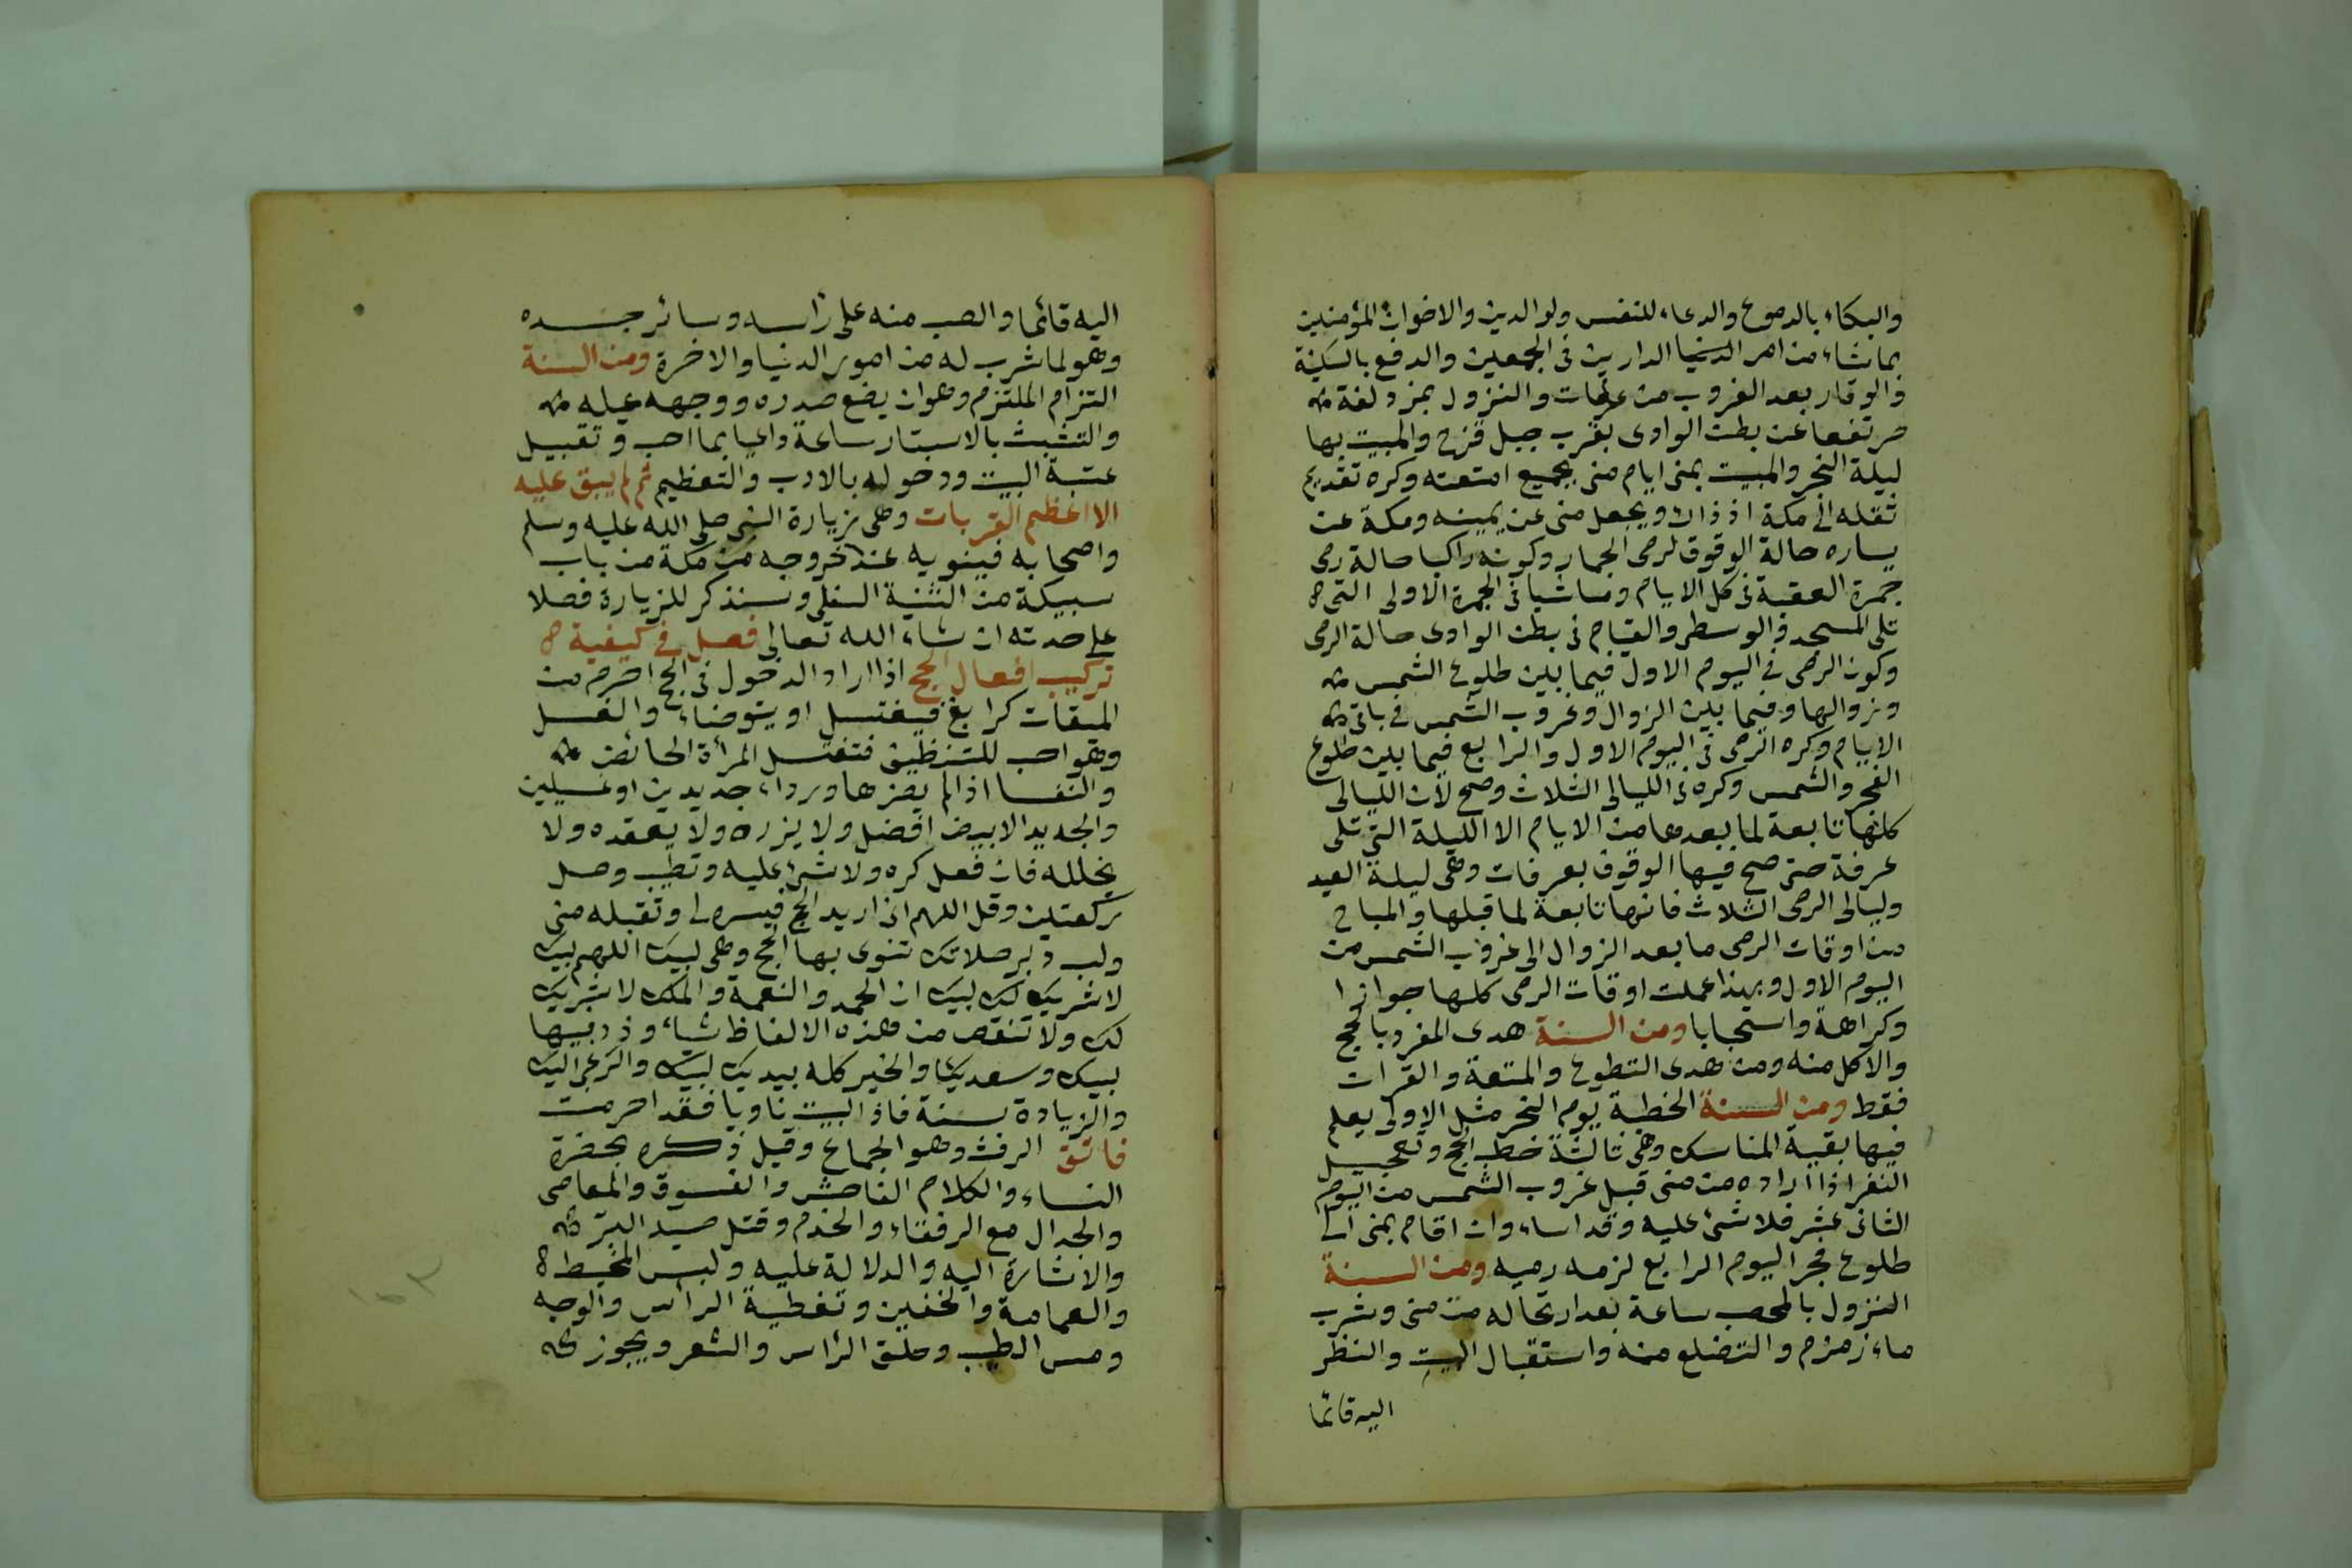 والبكاء بالدموع والدعاء للنفس ولوالدين والاخوان المؤمنين
بما شاء من امر الدارين فى الجمعين والدفع بالسكينة
والوقار بعد الغروب من عرفات والنزول بمزدلفة
مرتفعا عن بطن الوادى بقرب جبل قزح والمبيت بها
ليلة النحر والمبيت بمنى ايام منى بجميع امتعته وكره تقديم
ثقله الى مكة اذ ذاك ويجعل منى عن يمينه ومكة عن
يساره حالة الوقوف لرمى الجمار وكونه راكبا حالة رمى
جمرة العقبة فى كل الايام وماشيا فى الجمرة الاولى التى
تلى المسجد والوسطى والقيام فى بطن الوادى حالة الرمى
وكون الرمى فى اليوم الاول فيما بين طلوع الشمس
وزوالها وفيما بين الزوال وغروب الشمس فى باقى
الايام وكره الرمى فى اليوم الاول والرابع فيما بين طلوع
الفجر والشمس وكره فى الليالى الثلاث وصح لان الليالى
كلها تابعة لما بعدها من الايام الا الليلة التى تلى
عرفة حتى صح فيها الوقوف بعرفات وهى ليلة العيد
وليالى الرمى الثلاث فانها تابعة لما قبلها والمباح
من اوقات الرمى ما بعد الزوال الى غروب الشمس من
اليوم الاول وبهذا علمت اوقات الرمى كلها جوازا
وكراهة واستحبابا ومن السنة هدى المفرد بالحج
والاكل منه ومن هدى التطوع والمتعة والقران
فقط ومن السنة الخطبة يوم النحر مثل الاولى يعلم
فيها بقية المناسك وهى ثالثة خطب الحج وتعجيل
النفر اذا اراده من منى قبل غروب الشمس من اليوم
الثانى عشر فلا شئ عليه وقد اساء وان اقام بمنى الى
طلوع فجر اليوم الرابع لزمه رميه ومن السنة
النزول بالمحصب ساعة بعد ارتحاله من منى وشرب
ماء زمزم والتضلع منه واستقبال البيت والنظر
اليه قائما
اليه قائما والصب منه على راسه وسائر جسده
وهو لما شرب له من امور الدنيا والاخرة ومن السنة
التزام الملتزم وهو ان يضع صدره ووجهه عليه
والتشبث بالاستار ساعة داعيا بما احب وتقبيل
عتبة البيت ودخوله بالادب والتعظيم ثم لم يبق عليه
الا اعظم القربات وهى زيارة النبى صلى الله عليه وسلم
واصحابه فينويه عند خروجه من مكة من باب
سبيكة من الثنية السفلى وسنذكر للزيارة فصلا
على حدته ان شاء الله تعالى فصل فى كيفية
تركيب افعال الحج اذا اراد الدخول فى الحج احرم من
الميقات كرابغ فيغتسل او يتوضاء والغسل
وهو احب للتنظيف فتغتسل المرأة الحائض
والنفسا اذا لم يضرها ورداء جديدين او غسيلين
والجديد الابيض افضل ولا يزره ولا يعقده ولا
يخلله فان فعل كره ولا شئ عليه وتطيب وصل
ركعتين وقل اللهم انى اريد الحج فيسره لى وتقبله منى
ولب دبر صلاتك تنوى بها الحج وهى لبيك اللهم لبيك
لا شريك لك لبيك ان الحمد والنعمة والملك لا شريك
لك ولا تنقص من هذه الالفاظ شياء وزد فيها
لبيك وسعديك والخير كله بيديك لبيك والرغبى اليك
والزيادة سنة فاذا لبيت ناويا فقد احرمت
فاتق الرفث وهو الجماع وقيل ذكره بحضرة
النساء والكلام الفاحش والفسوق والمعاصى
والجدال مع الرفقاء والخدم وقتل صيد البر
والاشارة اليه والدلالة عليه ولبس المخيط
والعمامة والخفين وتغطية الرأس والوجه
ومس الطيب وحلق الراس والشعر ويجوز